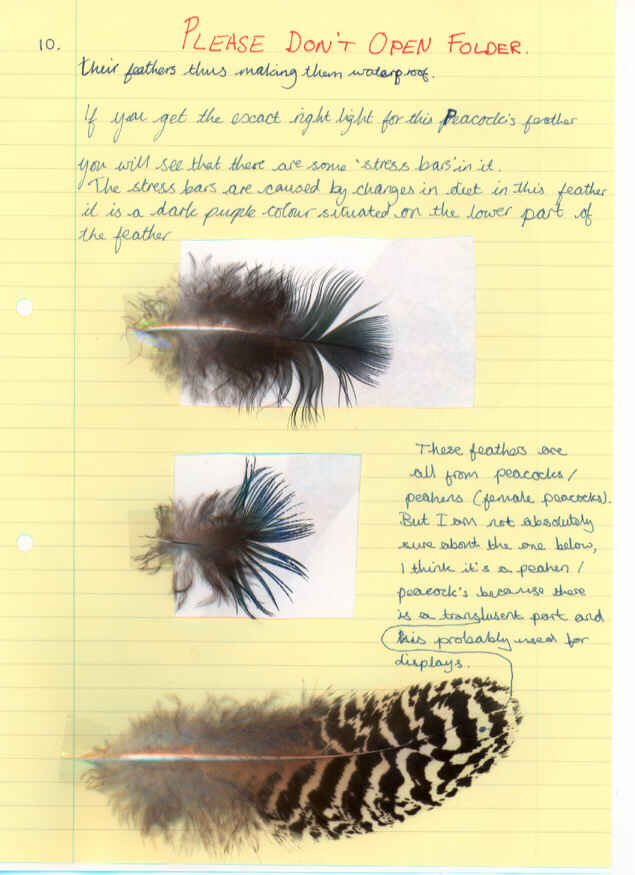 10.
PLEASE DON'T OPEN FOLDER.
their feathers thus making them waterproof.
If you get the excact right light for this Peacock's feather
you will see that there are some 'stress bars' in it.
The stress bars are caused by changes in diet in this feather
it is a dark purple colour situated on the lower part of
the feather
These feathers are
all from peacocks/
peahens (female peacocks).
But I am not absolutely
sure about the one below,
I think it's a peahen/
peacock's because there
is a translusent part and
this probably used for
displays.